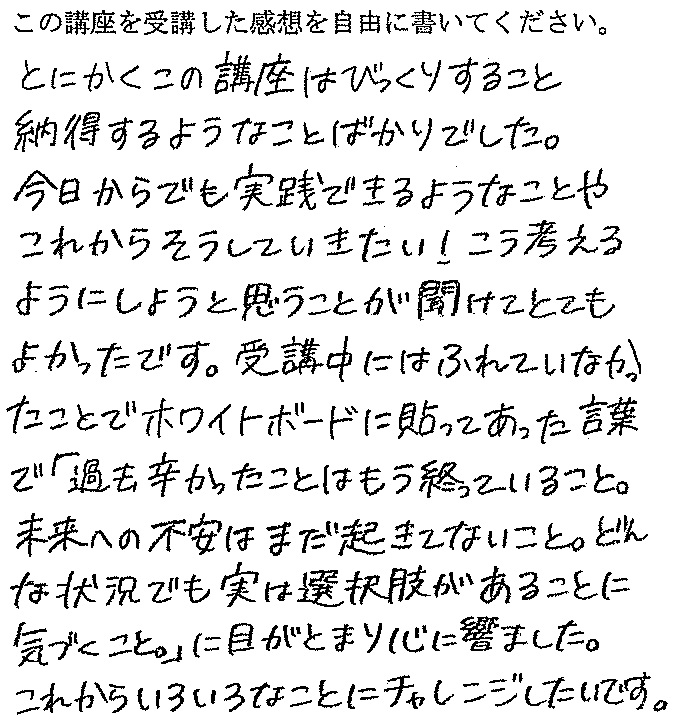 この講座を受講した感想を自由に書いてください。
とにかくこの講座はびっくりすること
納得するようなことばかりでした。
今日からでも実践できるようなことや
これからそうしていきたい！こう考える
ようにしようと思うことが聞けてとても
よかったです。受講中にはふれていなかっ
たことでホワイトボードに貼ってあった言葉
で「過去辛かったことはもう終っていること。
未来への不安はまだ起きてないこと。どん
な状況でも実は選択肢があることに
気づくこと。」に目がとまり心に響ました。
これからいろいろなことにチャレンジしたいです。